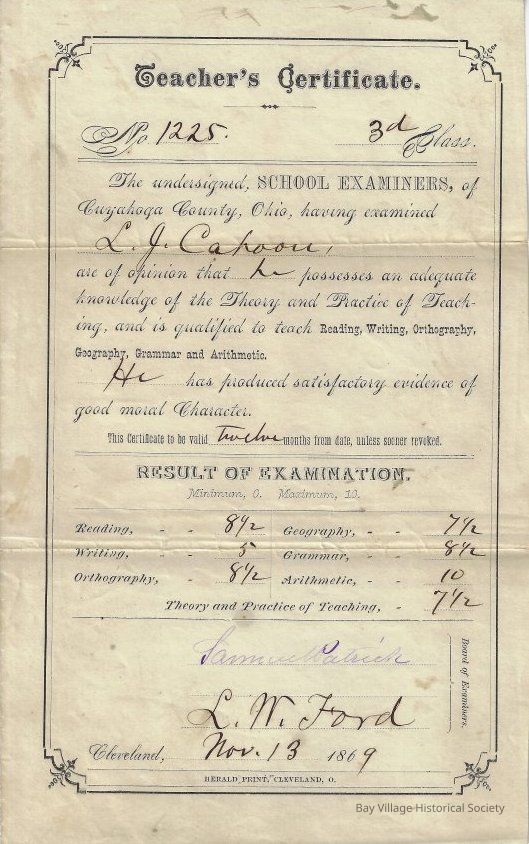 Teacher's Certificate.
No 1225. 3d Class.
The undersigned, SCHOOL EXAMINERS, of
Cuyahoga County, Ohio, having examined
L. J. Cahoon,
are of opinion that he possesses an adequate
knowledge of the Theory and Practice of Teach-
ing, and is qualified to teach Reading, Writing, Orthography,
Geography, Grammar and Arithmetic.
He has produced satisfactory evidence of
good moral Character.
This Certificate to be valid twelve months from date, unless sooner revoked.
RESULT OF EXAMINATION.
Minimum, 0. Maximum, 10.
Reading, - - 8½ Geography, - - 7½
Writing, - - 5 Grammar, - - 8½
Orthography, - - 8½ Arithmetic, - - 10
Theory and Practice of Teaching, - 7½
Samuel Patrick
L. W. Ford
Board of Examiners.
Cleveland, Nov. 13 1869
HERALD PRINT, CLEVELAND, O.
Bay Village Historical Society